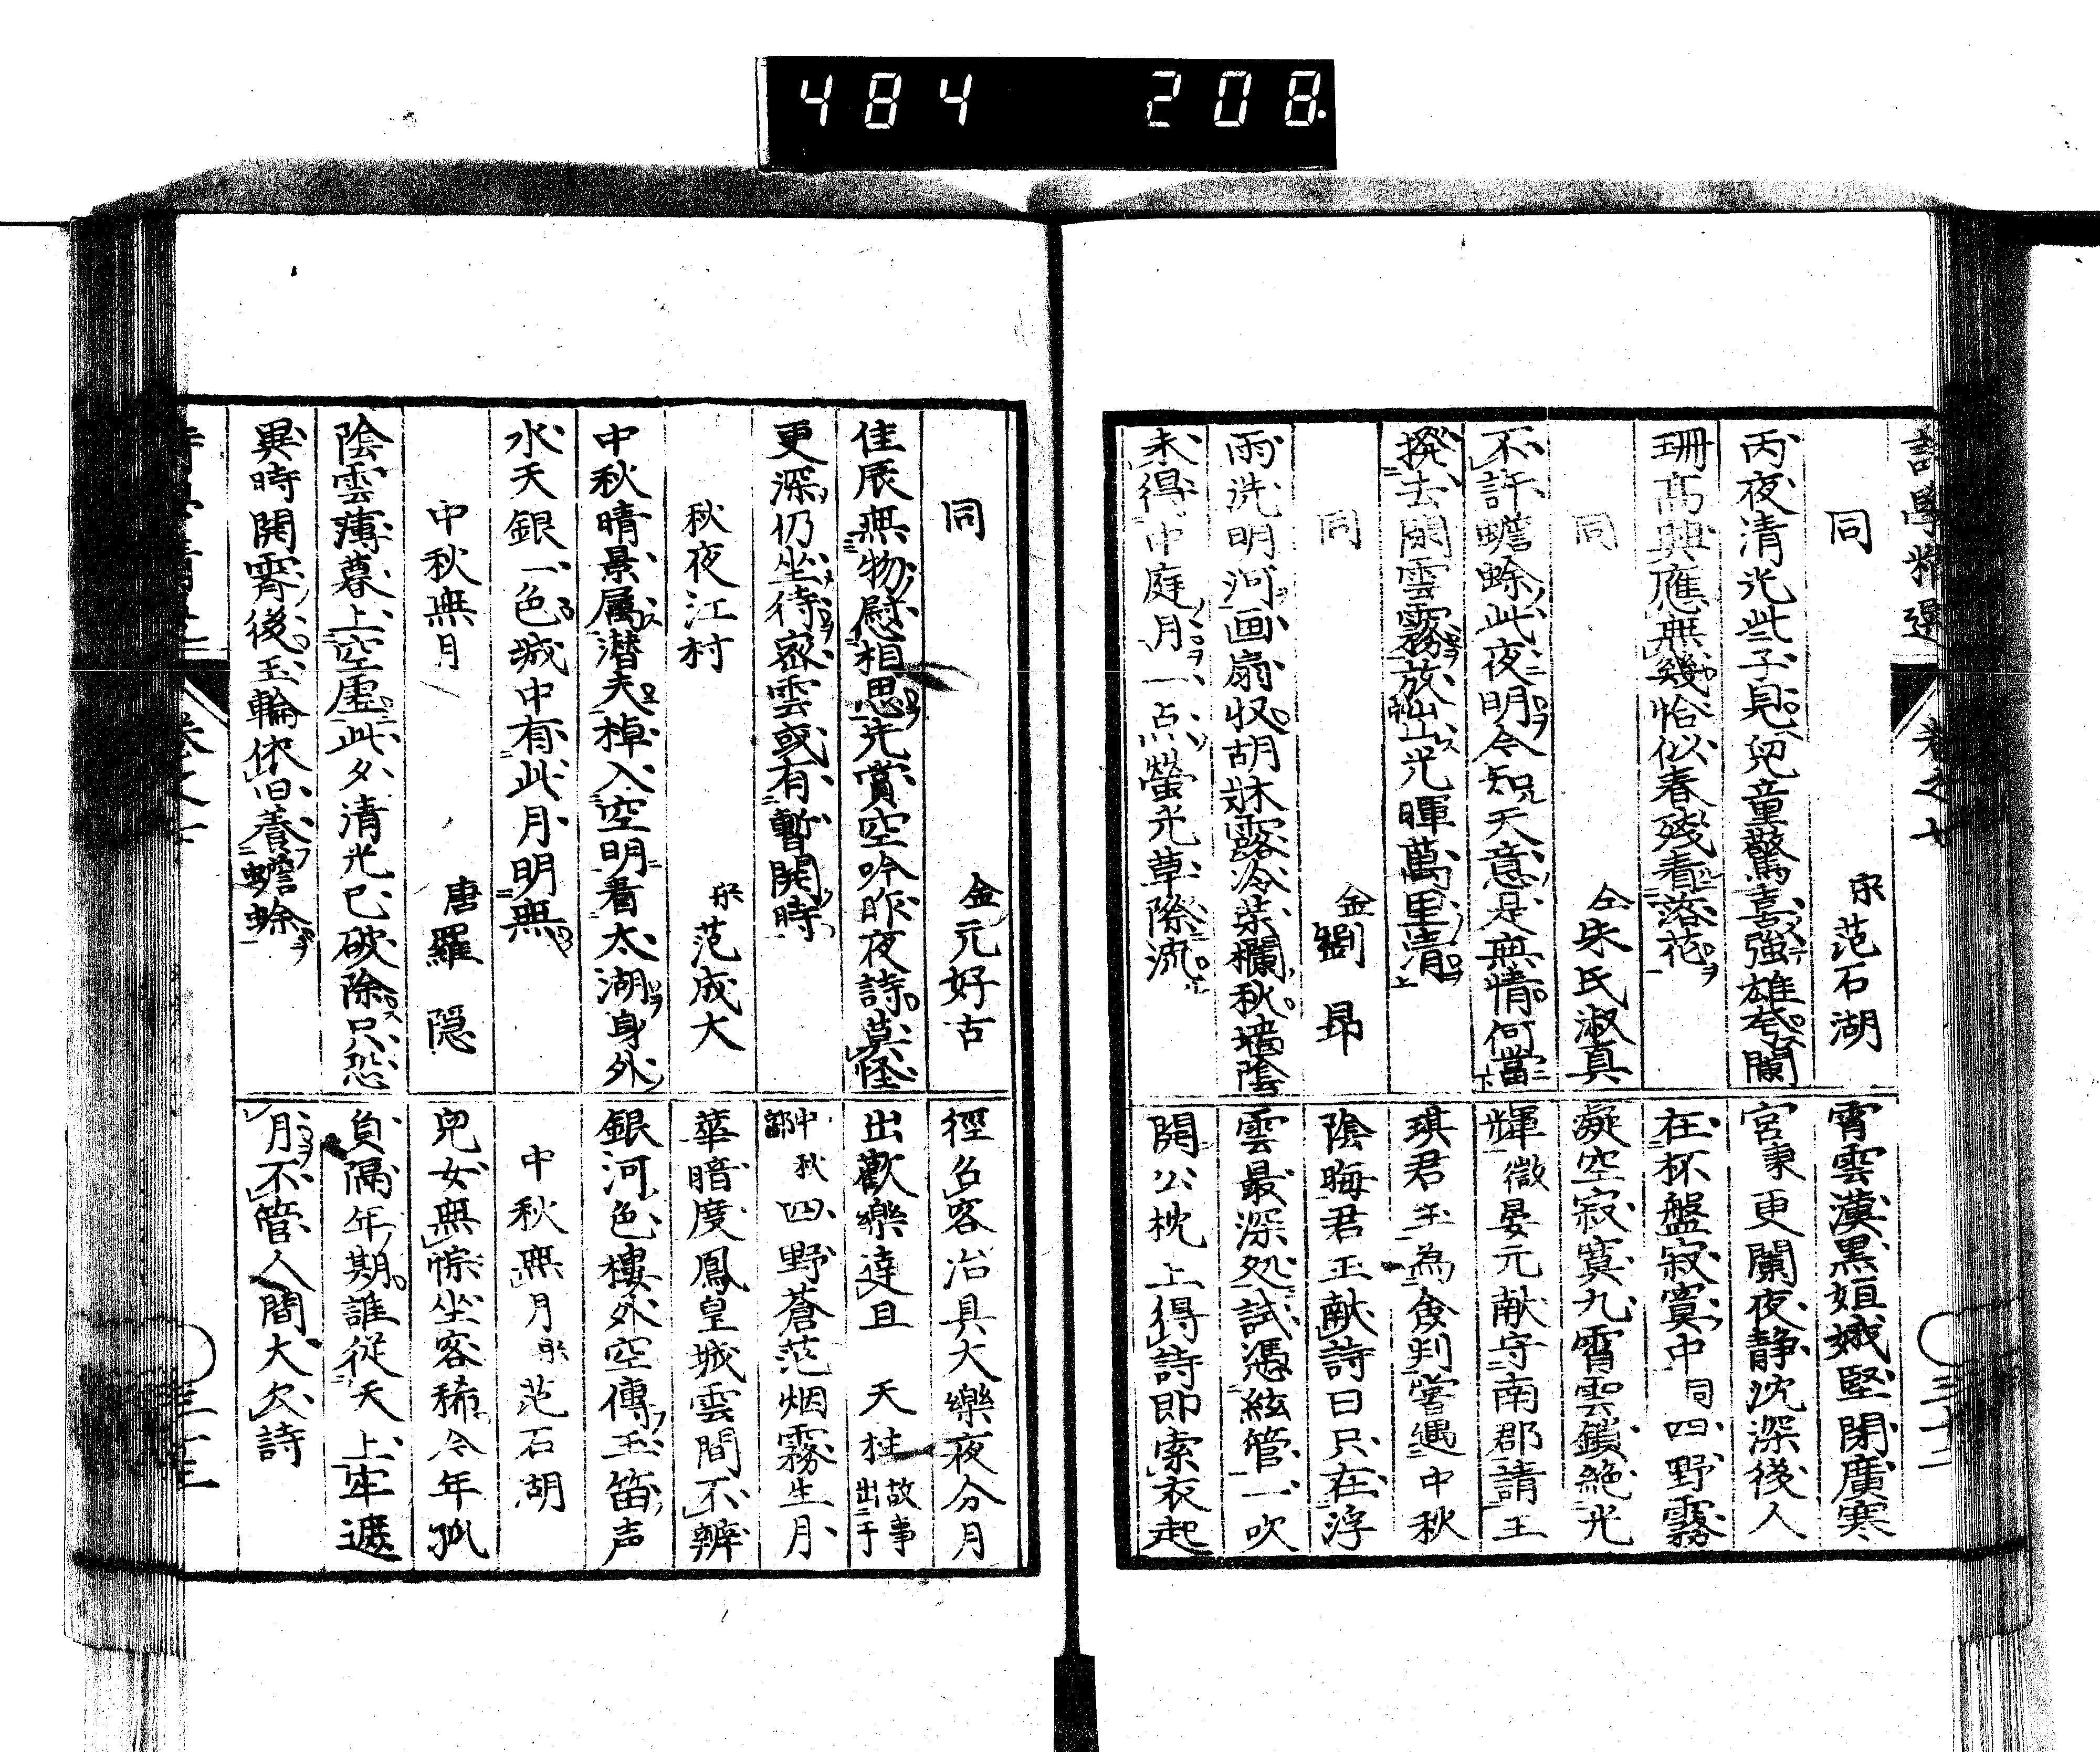 484 208
詩學精選 卷之七 三十二
同 宋 范石湖
丙夜清光些子見兒童驚喜強雄夸闌
珊高興應無幾恰似春殘看落花
同 仝 朱氏淑真
不許蟾蜍此夜明今知天意是無情何當
撥去閑雲霧放出光暉萬里清
同 金 劉昂
雨洗明河画扇収胡牀露冷菜欄秋墻陰
未得中庭月一点螢光草際流
霄雲漠黒姮娥堅閉廣寒
宮裏更闌夜静沈深後人
在杯盤寂寞中 同 四野霧
凝空寂寞九霄雲鎖絶光
輝 微 晏元献守南郡請王
琪君玉為僉判嘗遇中秋
陰晦君玉献詩曰只在浮
雲最深処試憑絃管一吹
開公枕上得詩即索衣起
同 金 元好古
佳辰無物慰相思先賞空吟昨夜詩莫怪
更深仍坐待密雲或有暫開時
秋夜江村 宋 范成大
中秋晴景属潜夫棹入空明看太湖身外
水天銀一色城中有此月明無
中秋無月 唐 羅隠
陰雲薄暮上空虚此夕清光已破除只恐
異時開霽後玉輪依旧養蟾蜍
徑召客治具大樂夜分月
出歡樂達旦 天柱 故事出于
中秋部 四野蒼茫烟霧生月
華暗度鳳皇城雲間不辨
銀河色樓外空傳玉笛声
中秋無月 宋 范石湖
兒女無悰坐客稀今年孤
負隔年期誰従天上牢遮
月不管人間大欠詩
卷之七 三十三